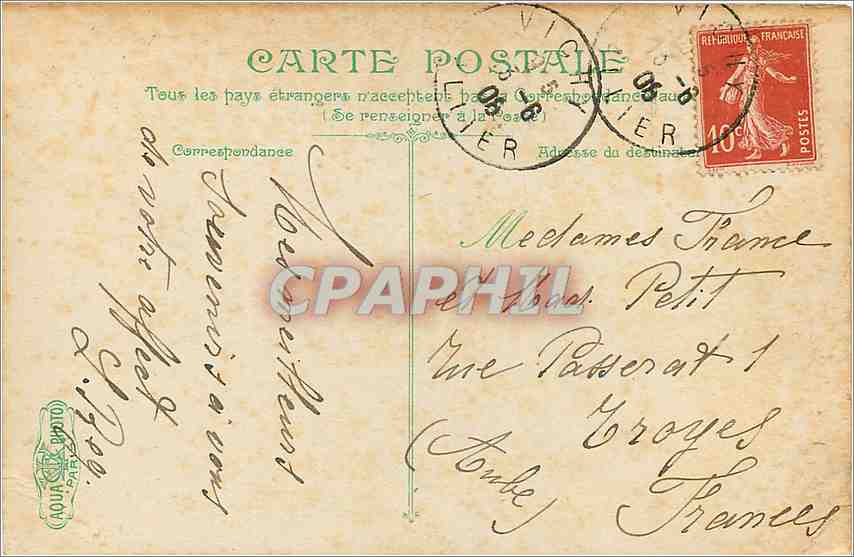 CARTE POSTALE
Tous les pays étrangers n'acceptent pas la Correspondance au
(Se renseigner à la Poste)
Correspondance
Adresse du destinataire
VICHY
ALLIER
VICHY
ALLIER
REPUBLIQUE FRANÇAISE
10c
POSTES
Mes meilleurs
Souvenirs à vous
de votre affect
Medames France
et Petit
rue Passerat 1
Troyes
(Aube)
France
CPAPHIL
AQUA PHOTO
PARIS